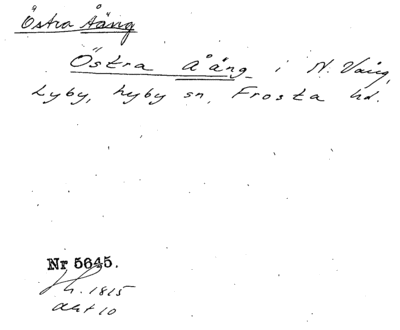 Östra Åäng
Östra Åäng i N. Väng,
Lyby, Lyby sn, Frosta hd.
Nr 5645.
h. 1815
akt 10